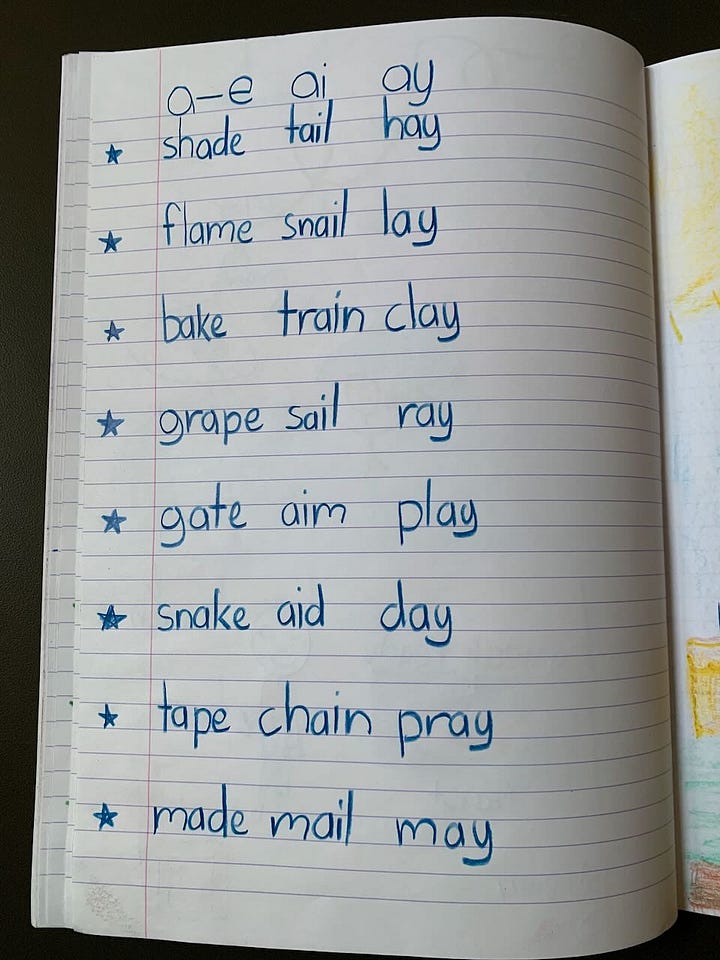 a-e ai ay
shade tail hay
flame snail lay
bake train clay
grape sail ray
gate aim play
snake aid day
tape chain pray
made mail may